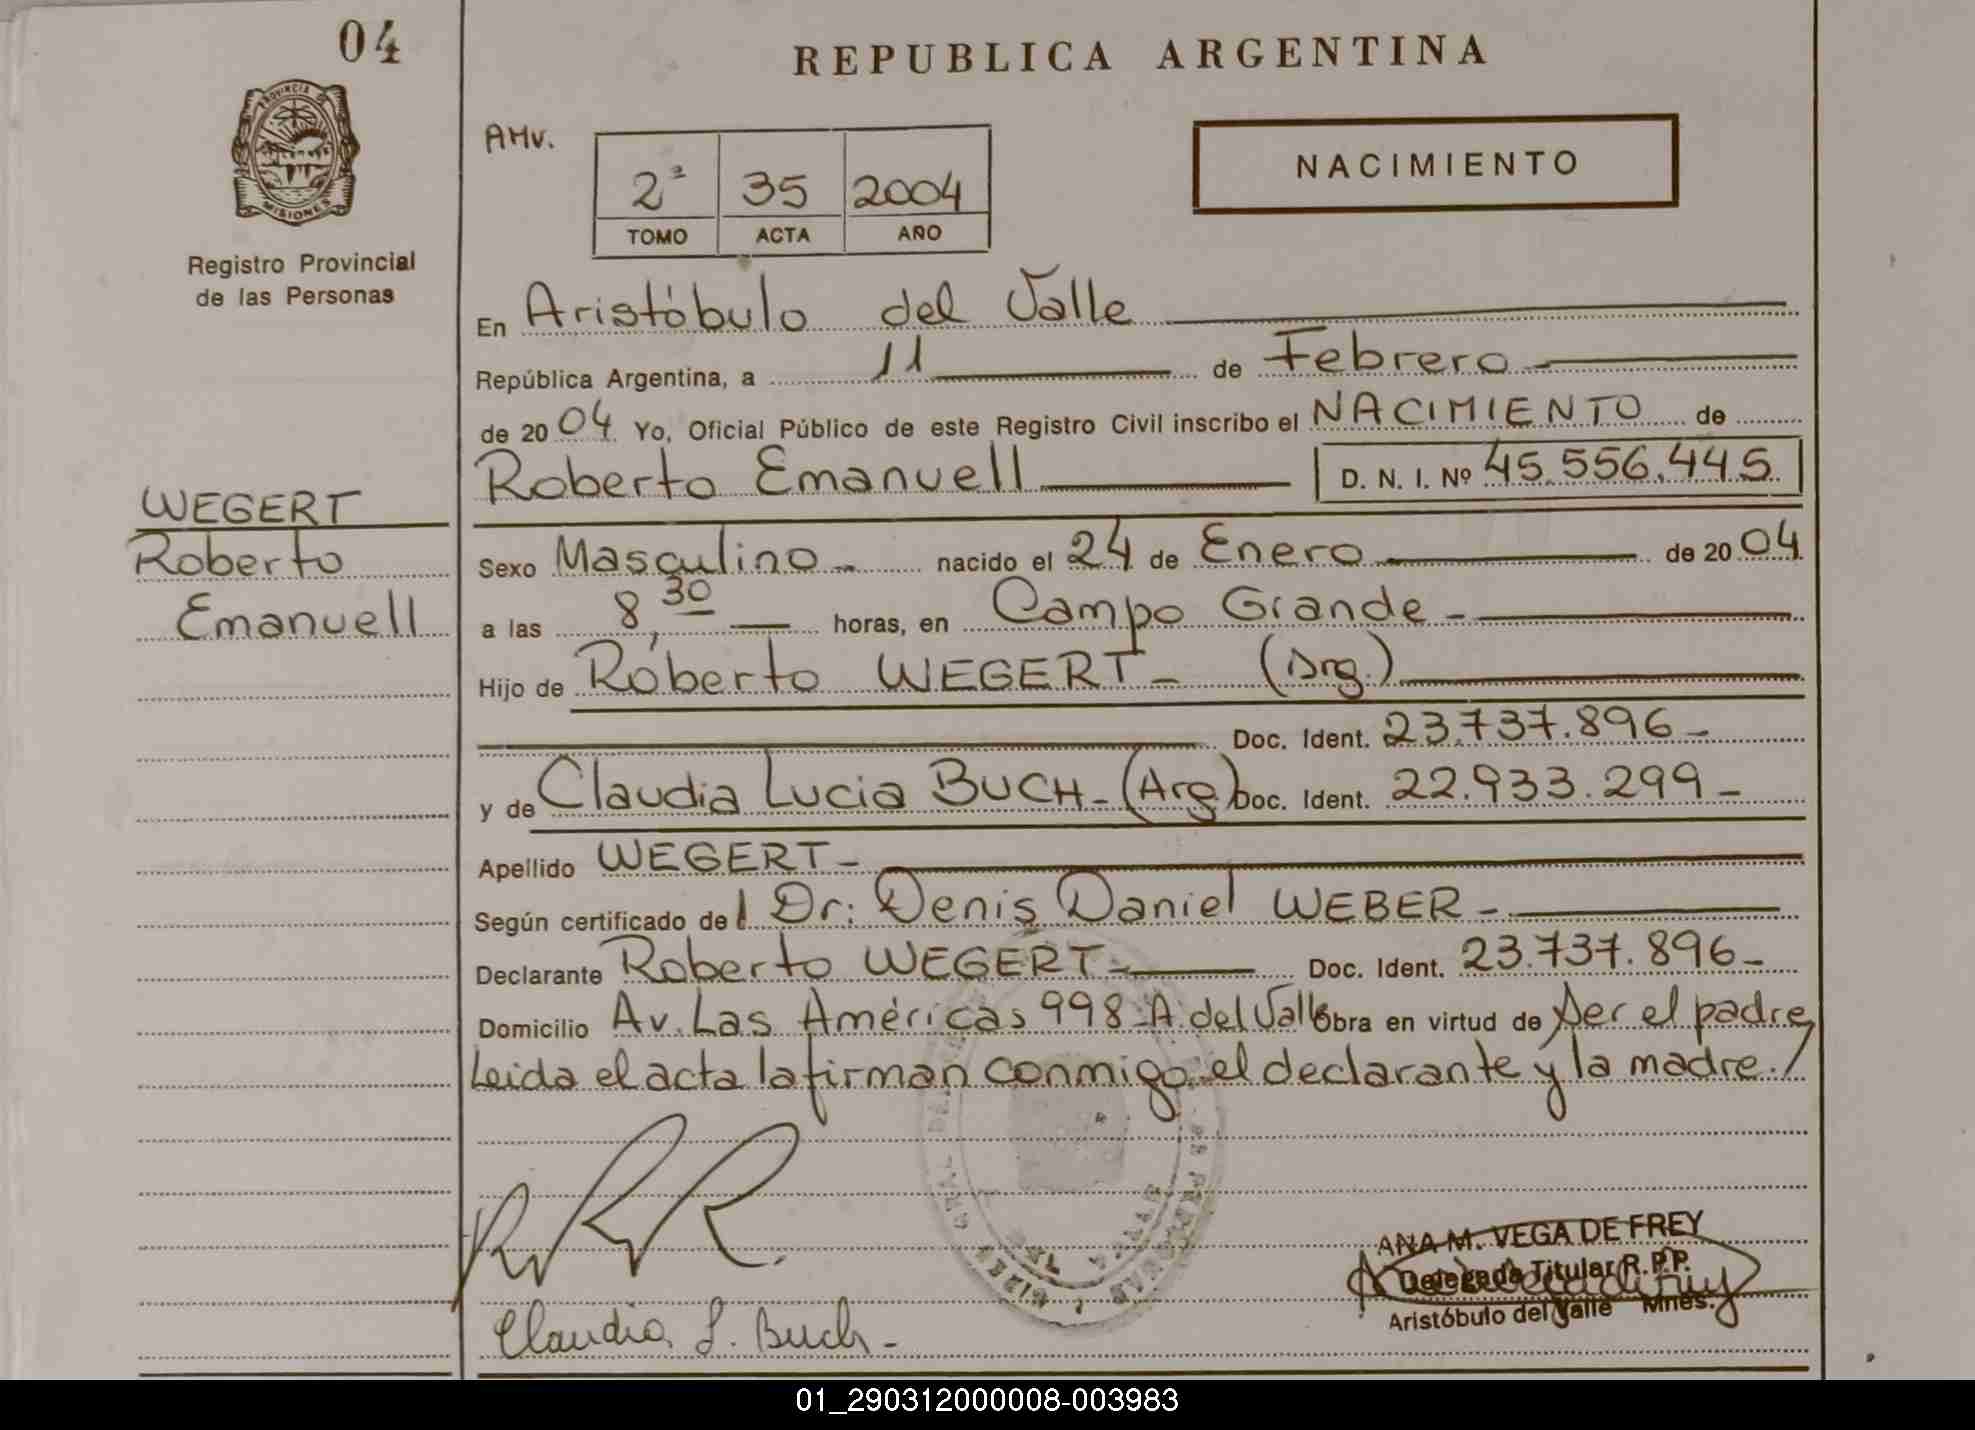 04
REPUBLICA ARGENTINA
PROVINCIA DE
MISIONES
Registro Provincial
de las Personas
AMV.
2ª 35 2004
TOMO ACTA AÑO
NACIMIENTO
En Aristóbulo del Valle
República Argentina, a 11 de Febrero
de 2004 Yo, Oficial Público de este Registro Civil inscribo el NACIMIENTO de
Roberto Emanuell D. N. I. Nº 45.556.445
WEGERT
Roberto
Emanuell
Sexo Masculino nacido el 24 de Enero de 2004
a las 8,30 horas, en Campo Grande
Hijo de Roberto WEGERT (Arg.)
Doc. Ident. 23.737.896
y de Claudia Lucia BUCH (Arg) Doc. Ident. 22.933.299
Apellido WEGERT
Según certificado del Dr: Denis Daniel WEBER
Declarante Roberto WEGERT Doc. Ident. 23.737.896
Domicilio Av. Las Américas 998 A. del Valle Obra en virtud de Ser el padre
Leida el acta la firman conmigo el declarante y la madre./
Claudia L. Buch
ANA M. VEGA DE FREY
Delegada Titular R.P.P.
Aristóbulo del Valle Mnes.
01_290312000008-003983